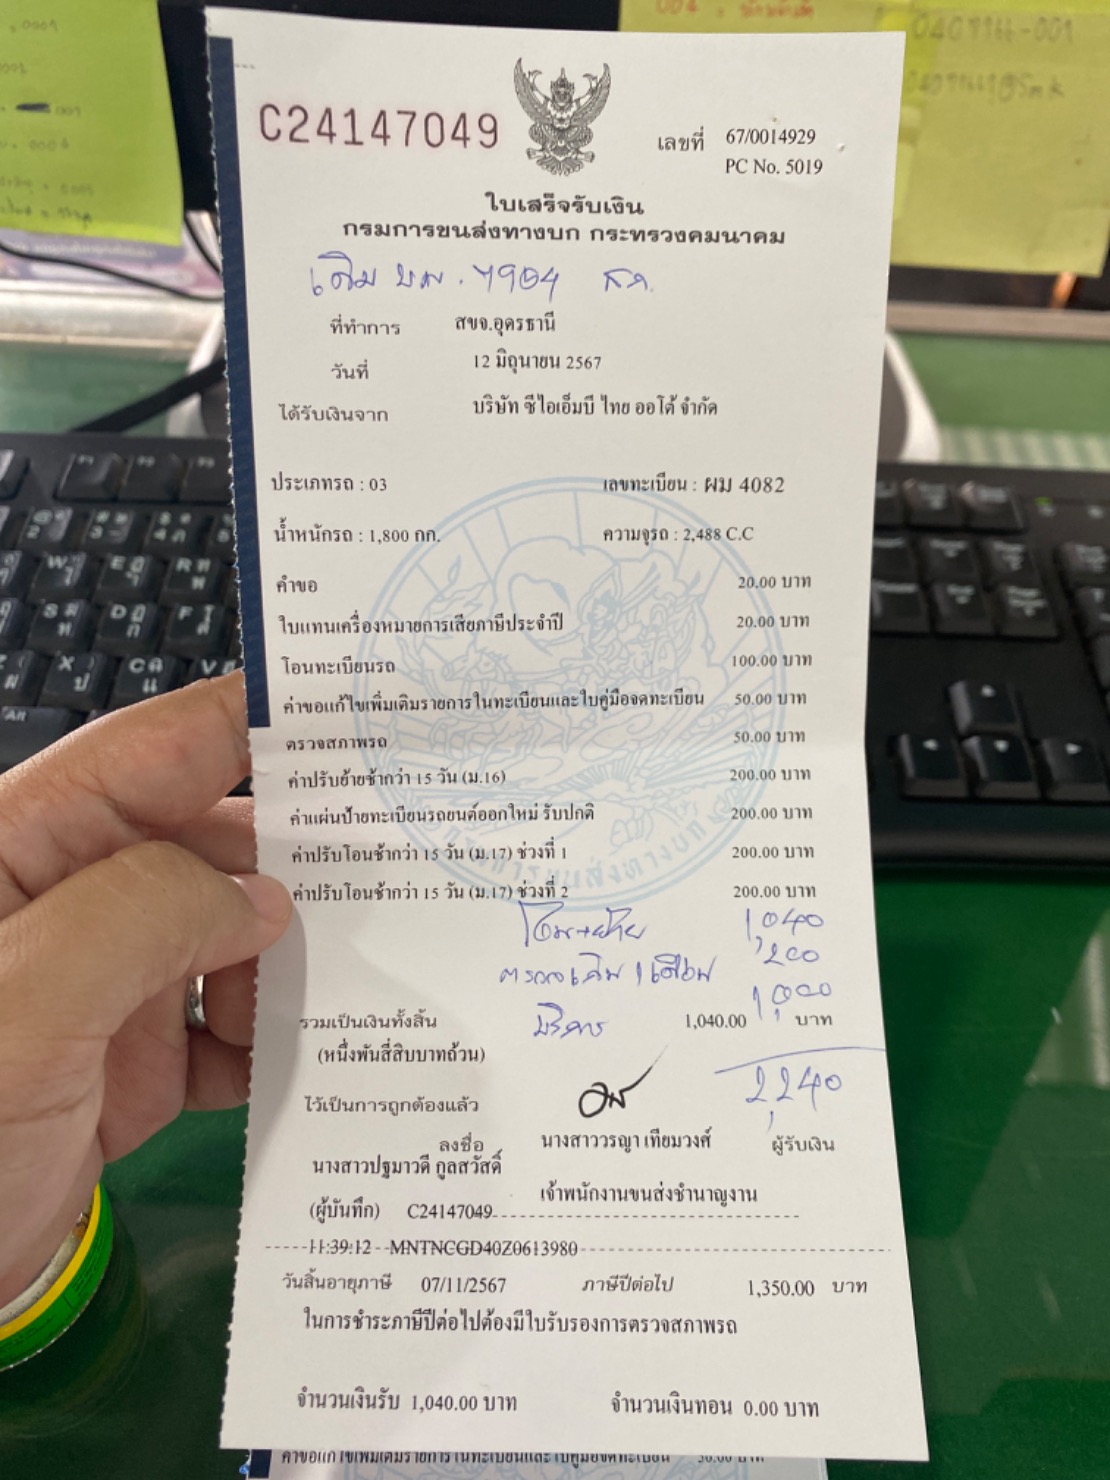 C24147049
เลขที่ 67/0014929
PC No. 5019
ใบเสร็จรับเงิน
กรมการขนส่งทางบก กระทรวงคมนาคม
เดิม บม. 7904 สก.
ที่ทำการ สขจ.อุดรธานี
วันที่ 12 มิถุนายน 2567
ได้รับเงินจาก บริษัท ซีไอเอ็มบี ไทย ออโต้ จำกัด
ประเภทรถ : 03 เลขทะเบียน : ผม 4082
น้ำหนักรถ : 1,800 กก. ความจุรถ : 2,488 C.C
คำขอ 20.00 บาท
ใบแทนเครื่องหมายการเสียภาษีประจำปี 20.00 บาท
โอนทะเบียนรถ 100.00 บาท
ค่าขอแก้ไขเพิ่มเติมรายการในทะเบียนและใบคู่มือจดทะเบียน 50.00 บาท
ตรวจสภาพรถ 50.00 บาท
ค่าปรับย้ายช้ากว่า 15 วัน (ม.16) 200.00 บาท
ค่าแผ่นป้ายทะเบียนรถยนต์ออกใหม่ รับปกติ 200.00 บาท
ค่าปรับโอนช้ากว่า 15 วัน (ม.17) ช่วงที่ 1 200.00 บาท
ค่าปรับโอนช้ากว่า 15 วัน (ม.17) ช่วงที่ 2 200.00 บาท
โอน+ย้าย 1,040
ตรวจเดิม 1 เดือน 200
บริการ 1,000
รวมเป็นเงินทั้งสิ้น 1,040.00 บาท
(หนึ่งพันสี่สิบบาทถ้วน)
2,240
ไว้เป็นการถูกต้องแล้ว
ลงชื่อ นางสาววรญา เทียมวงศ์ ผู้รับเงิน
นางสาวปฐมาวดี กูลสวัสดิ์
เจ้าพนักงานขนส่งชำนาญงาน
(ผู้บันทึก) C24147049
11:39:12 MNTNCGD40Z0613980
วันสิ้นอายุภาษี 07/11/2567 ภาษีปีต่อไป 1,350.00 บาท
ในการชำระภาษีปีต่อไปต้องมีใบรับรองการตรวจสภาพรถ
จำนวนเงินรับ 1,040.00 บาท จำนวนเงินทอน 0.00 บาท
ค่าขอแก้ไขเพิ่มเติมรายการในทะเบียนและใบคู่มือจดทะเบียน 50.00 บาท